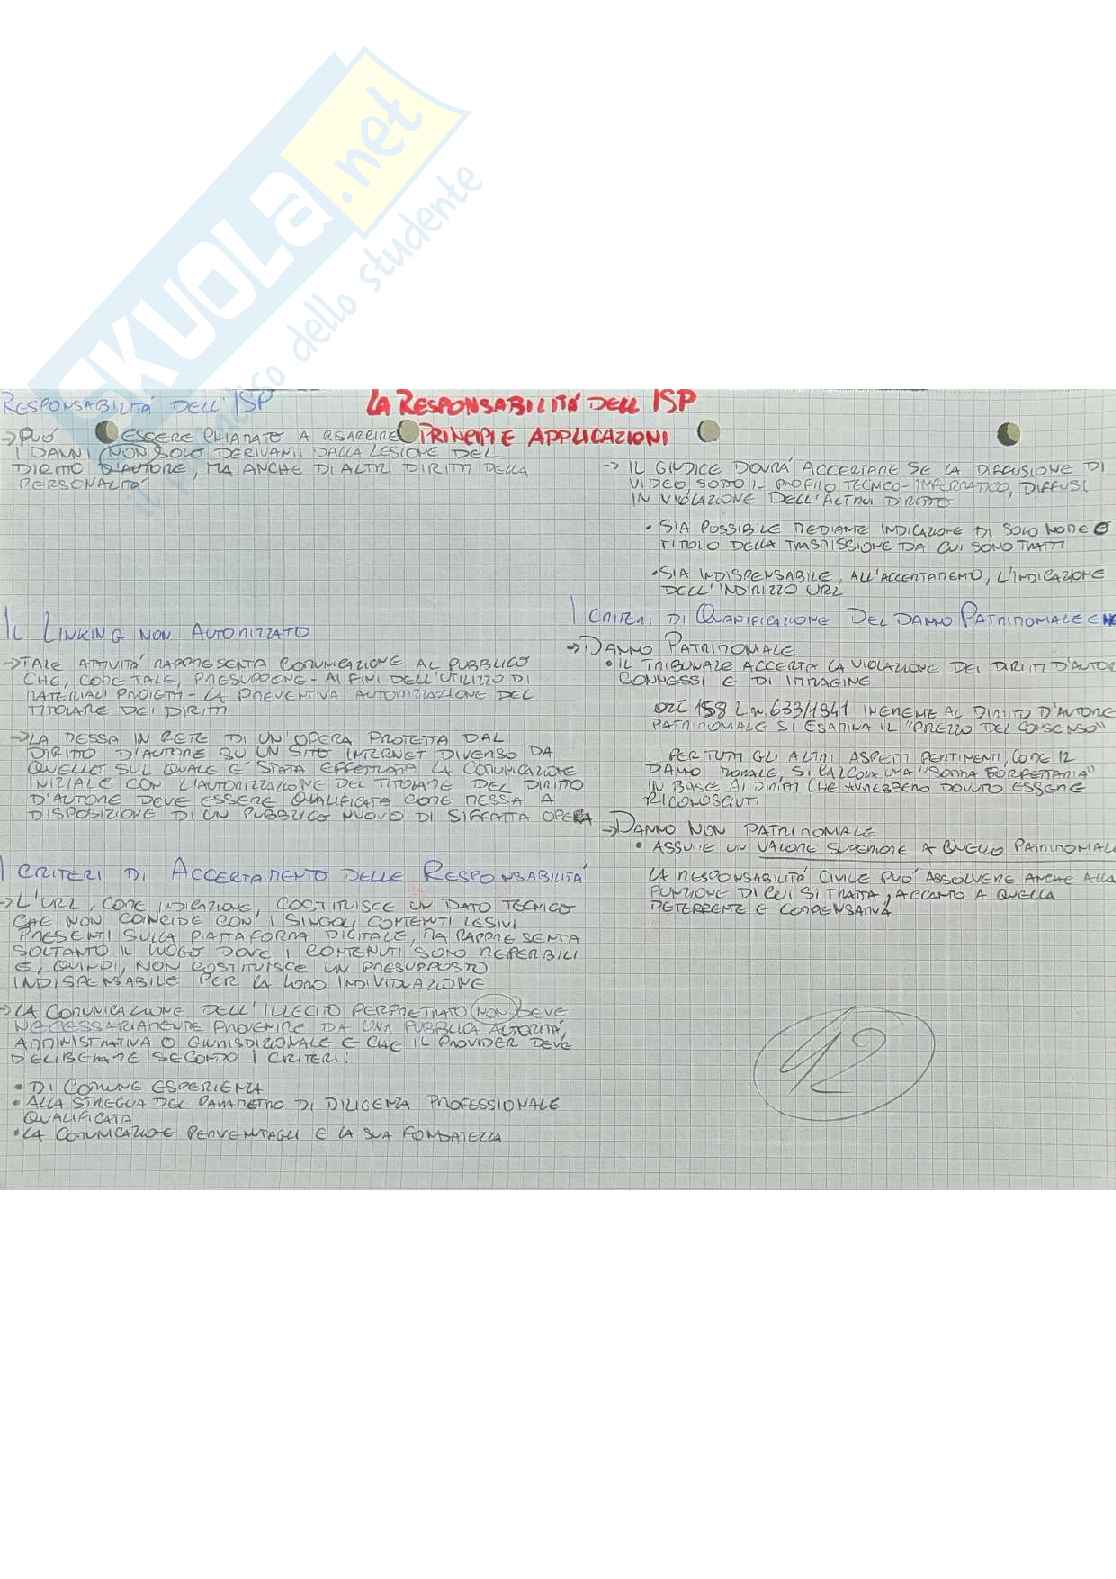 SKUOLA.net
dello studente
LA RESPONSABILITÀ DELL ISP
PRINCIPI E APPLICAZIONI
RESPONSABILITÀ DELL'ISP
→ PUÒ ESSERE CHIAMATO A RISARCIRE
I DANNI (NON SOLO DERIVANTI DALLA LESIONE DEL
DIRITTO D'AUTORE, MA ANCHE DI ALTRI DIRITTI DELLA
PERSONALITÀ
IL LINKING NON AUTORIZZATO
→ TALE ATTIVITÀ RAPPRESENTA COMUNICAZIONE AL PUBBLICO
CHE, COME TALE, PRESUPPONE - AI FINI DELL'UTILIZZO DI
MATERIALI PROTETTI - LA PREVENTIVA AUTORIZZAZIONE DEL
TITOLARE DEI DIRITTI
→ LA MESSA IN RETE DI UN'OPERA PROTETTA DAL
DIRITTO D'AUTORE SU UN SITO INTERNET DIVERSO DA
QUELLO SUL QUALE È STATA EFFETTUATA LA COMUNICAZIONE
INIZIALE CON L'AUTORIZZAZIONE DEL TITOLARE DEL DIRITTO
D'AUTORE DEVE ESSERE QUALIFICATA COME MESSA A
DISPOSIZIONE DI UN PUBBLICO NUOVO DI SIFFATTA OPERA
I CRITERI DI ACCERTAMENTO DELLE RESPONSABILITÀ
→ L'URL, COME INDICAZIONE, COSTITUISCE UN DATO TECNICO
CHE NON COINCIDE CON I SINGOLI CONTENUTI LESIVI
PRESENTI SULLA PIATTAFORMA DIGITALE, MA RAPPRESENTA
SOLTANTO IL LUOGO DOVE I CONTENUTI SONO REPERIBILI
E, QUINDI, NON COSTITUISCE UN PRESUPPOSTO
INDISPENSABILE PER LA LORO INDIVIDUAZIONE
→ LA COMUNICAZIONE DELL'ILLECITO PERPETRATO NON DEVE
NECESSARIAMENTE PROVENIRE DA UNA PUBBLICA AUTORITÀ,
AMMINISTRATIVA O GIURISDIZIONALE E CHE IL PROVIDER DEVE
DELIBERARE SECONDO I CRITERI:
• DI COMUNE ESPERIENZA
• ALLA STREGUA DEL PARAMETRO DI DILIGENZA PROFESSIONALE
QUALIFICATA
• LA COMUNICAZIONE PERVENTAGLI E LA SUA FONDATELLA
→ IL GIUDICE DOVRÀ ACCERTARE SE LA DIFFUSIONE DI
VIDEO, SOTTO IL PROFILO TECNICO-INFORMATICO, DIFFUSI
IN VIOLAZIONE DELL'ALTRUI DIRITTO
• SIA POSSIBILE MEDIANTE INDICAZIONE DI SOLO NOME O
TITOLO DELLA TRASMISSIONE DA CUI SONO TRATTI
• SIA INDISPENSABILE, ALL'ACCERTAMENTO, L'INDICAZIONE
DELL'INDIRIZZO URL
I CRITERI DI QUANTIFICAZIONE DEL DANNO PATRIMONIALE E NO
→ DANNO PATRIMONIALE
• IL TRIBUNALE ACCERTA LA VIOLAZIONE DEI DIRITTI D'AUTOR
CONNESSI E DI IMMAGINE
158 L.n. 633/1941 INERENTE AL DIRITTO D'AUTORE
PATRIMONIALE SI ESAMINA IL "PREZZO DEL CONSENSO"
PER TUTTI GLI ALTRI ASPETTI PERTINENTI, COME IL
DANNO MORALE, SI CALCOLA UNA "SOMMA FORFETTARIA"
IN BASE AI DIRITTI CHE AVREBBERO DOVUTO ESSERE
RICONOSCIUTI
→ DANNO NON PATRIMONIALE
• ASSUME UN VALORE SUPERIORE A QUELLO PATRIMONIALE
LA RESPONSABILITÀ CIVILE PUÒ ASSOLVERE ANCHE ALLA
FUNZIONE DI CUI SI TRATTA, ACCANTO A QUELLA
DETERRENTE E COMPENSATIVA
92